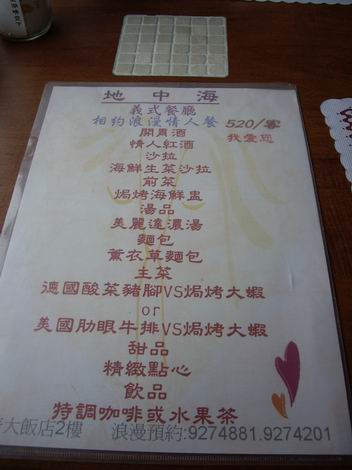 地中海
義式餐廳
相約浪漫情人餐 520/客
開胃酒 我愛您
情人紅酒
沙拉
海鮮生菜沙拉
前菜
焗烤海鮮盅
湯品
美麗達濃湯
麵包
薰衣草麵包
主菜
德國酸菜豬腳VS焗烤大蝦
or
美國肋眼牛排VS焗烤大蝦
甜品
精緻點心
飲品
特調咖啡或水果茶
大飯店2樓 浪漫預約:9274881.9274201